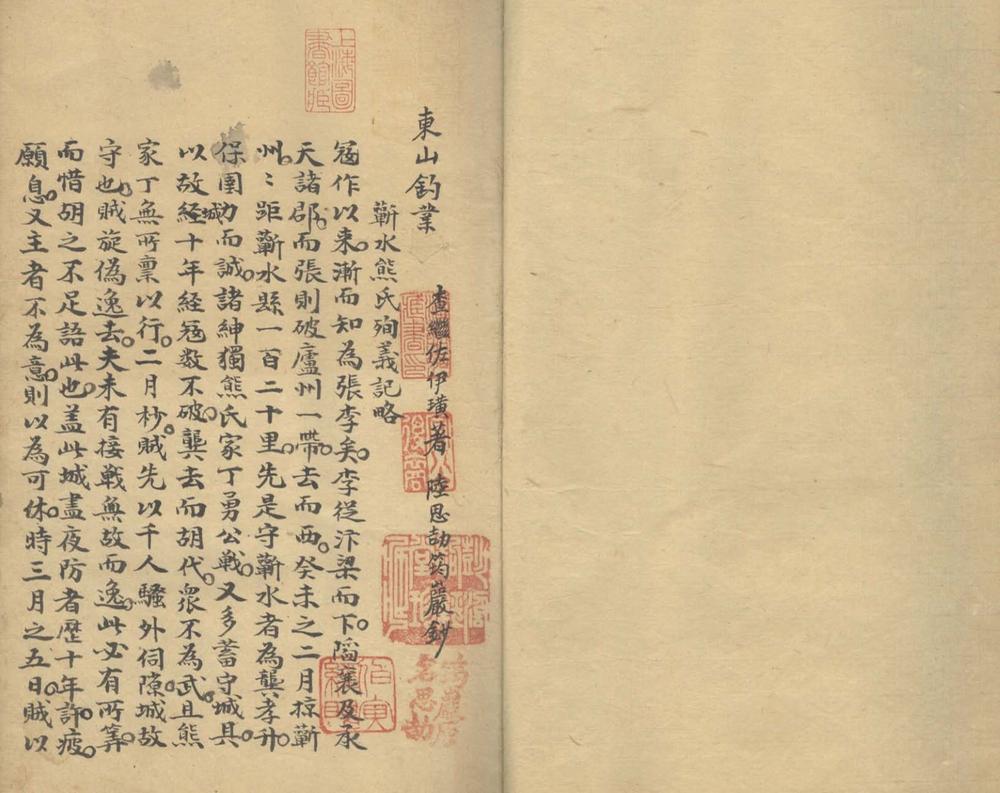 東山釣業
查繼佐伊璜著 陸思劼筠巖鈔
蘄水熊氏殉義記略
寇作以来漸而知為張李矣李從汴梁而下隘襄及承
天諸郡而張則破廬州一帶去而西癸未之二月掠蘄
州〻距蘄水縣一百二十里先是守蘄水者為龔孝升
保圍力而誠諸紳獨熊氏家丁勇公戰又多蓄守城具
以故城經十年経寇数不破龔去而胡代衆不為武且熊
家丁無所稟以行二月杪賊先以千人騷外伺隙城故
守也賊旋偽逸去夫未有接戰無故而逸此必有所筭
而惜胡之不足語此也盖此城晝夜防者歴十年許疲
願息又主者不為意則以為可休時三月之五日賊以
上海圖書館藏